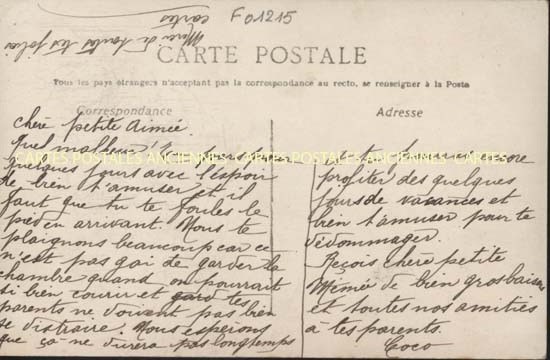 Merci de toutes tes jolies
cartes
F01215
CARTE POSTALE
Tous les pays étrangers n'acceptant pas la correspondance au recto, se renseigner à la Poste
Correspondance
Chère petite Aimée.
Que malheur! tu pars pour
quelques jours avec l'espoir
de bien t'amuser et il
faut que tu te foules le
pied en arrivant. Nous te
plaignons beaucoup car ce
n'est pas gai de garder la
chambre quand on pourrait
si bien courir et tes
parents ne doivent pas bien
se distraire. Nous espérons
que ça ne durera pas longtemps
Adresse
et tu pourras encore
profiter des quelques
jours de vacances et
bien t'amuser pour te
dédommager.
Reçois chère petite
Mimée de bien gros baisers
et toutes nos amitiés
à tes parents.
Coco
CARTES POSTALES ANCIENNES CARTES POSTALES ANCIENNES